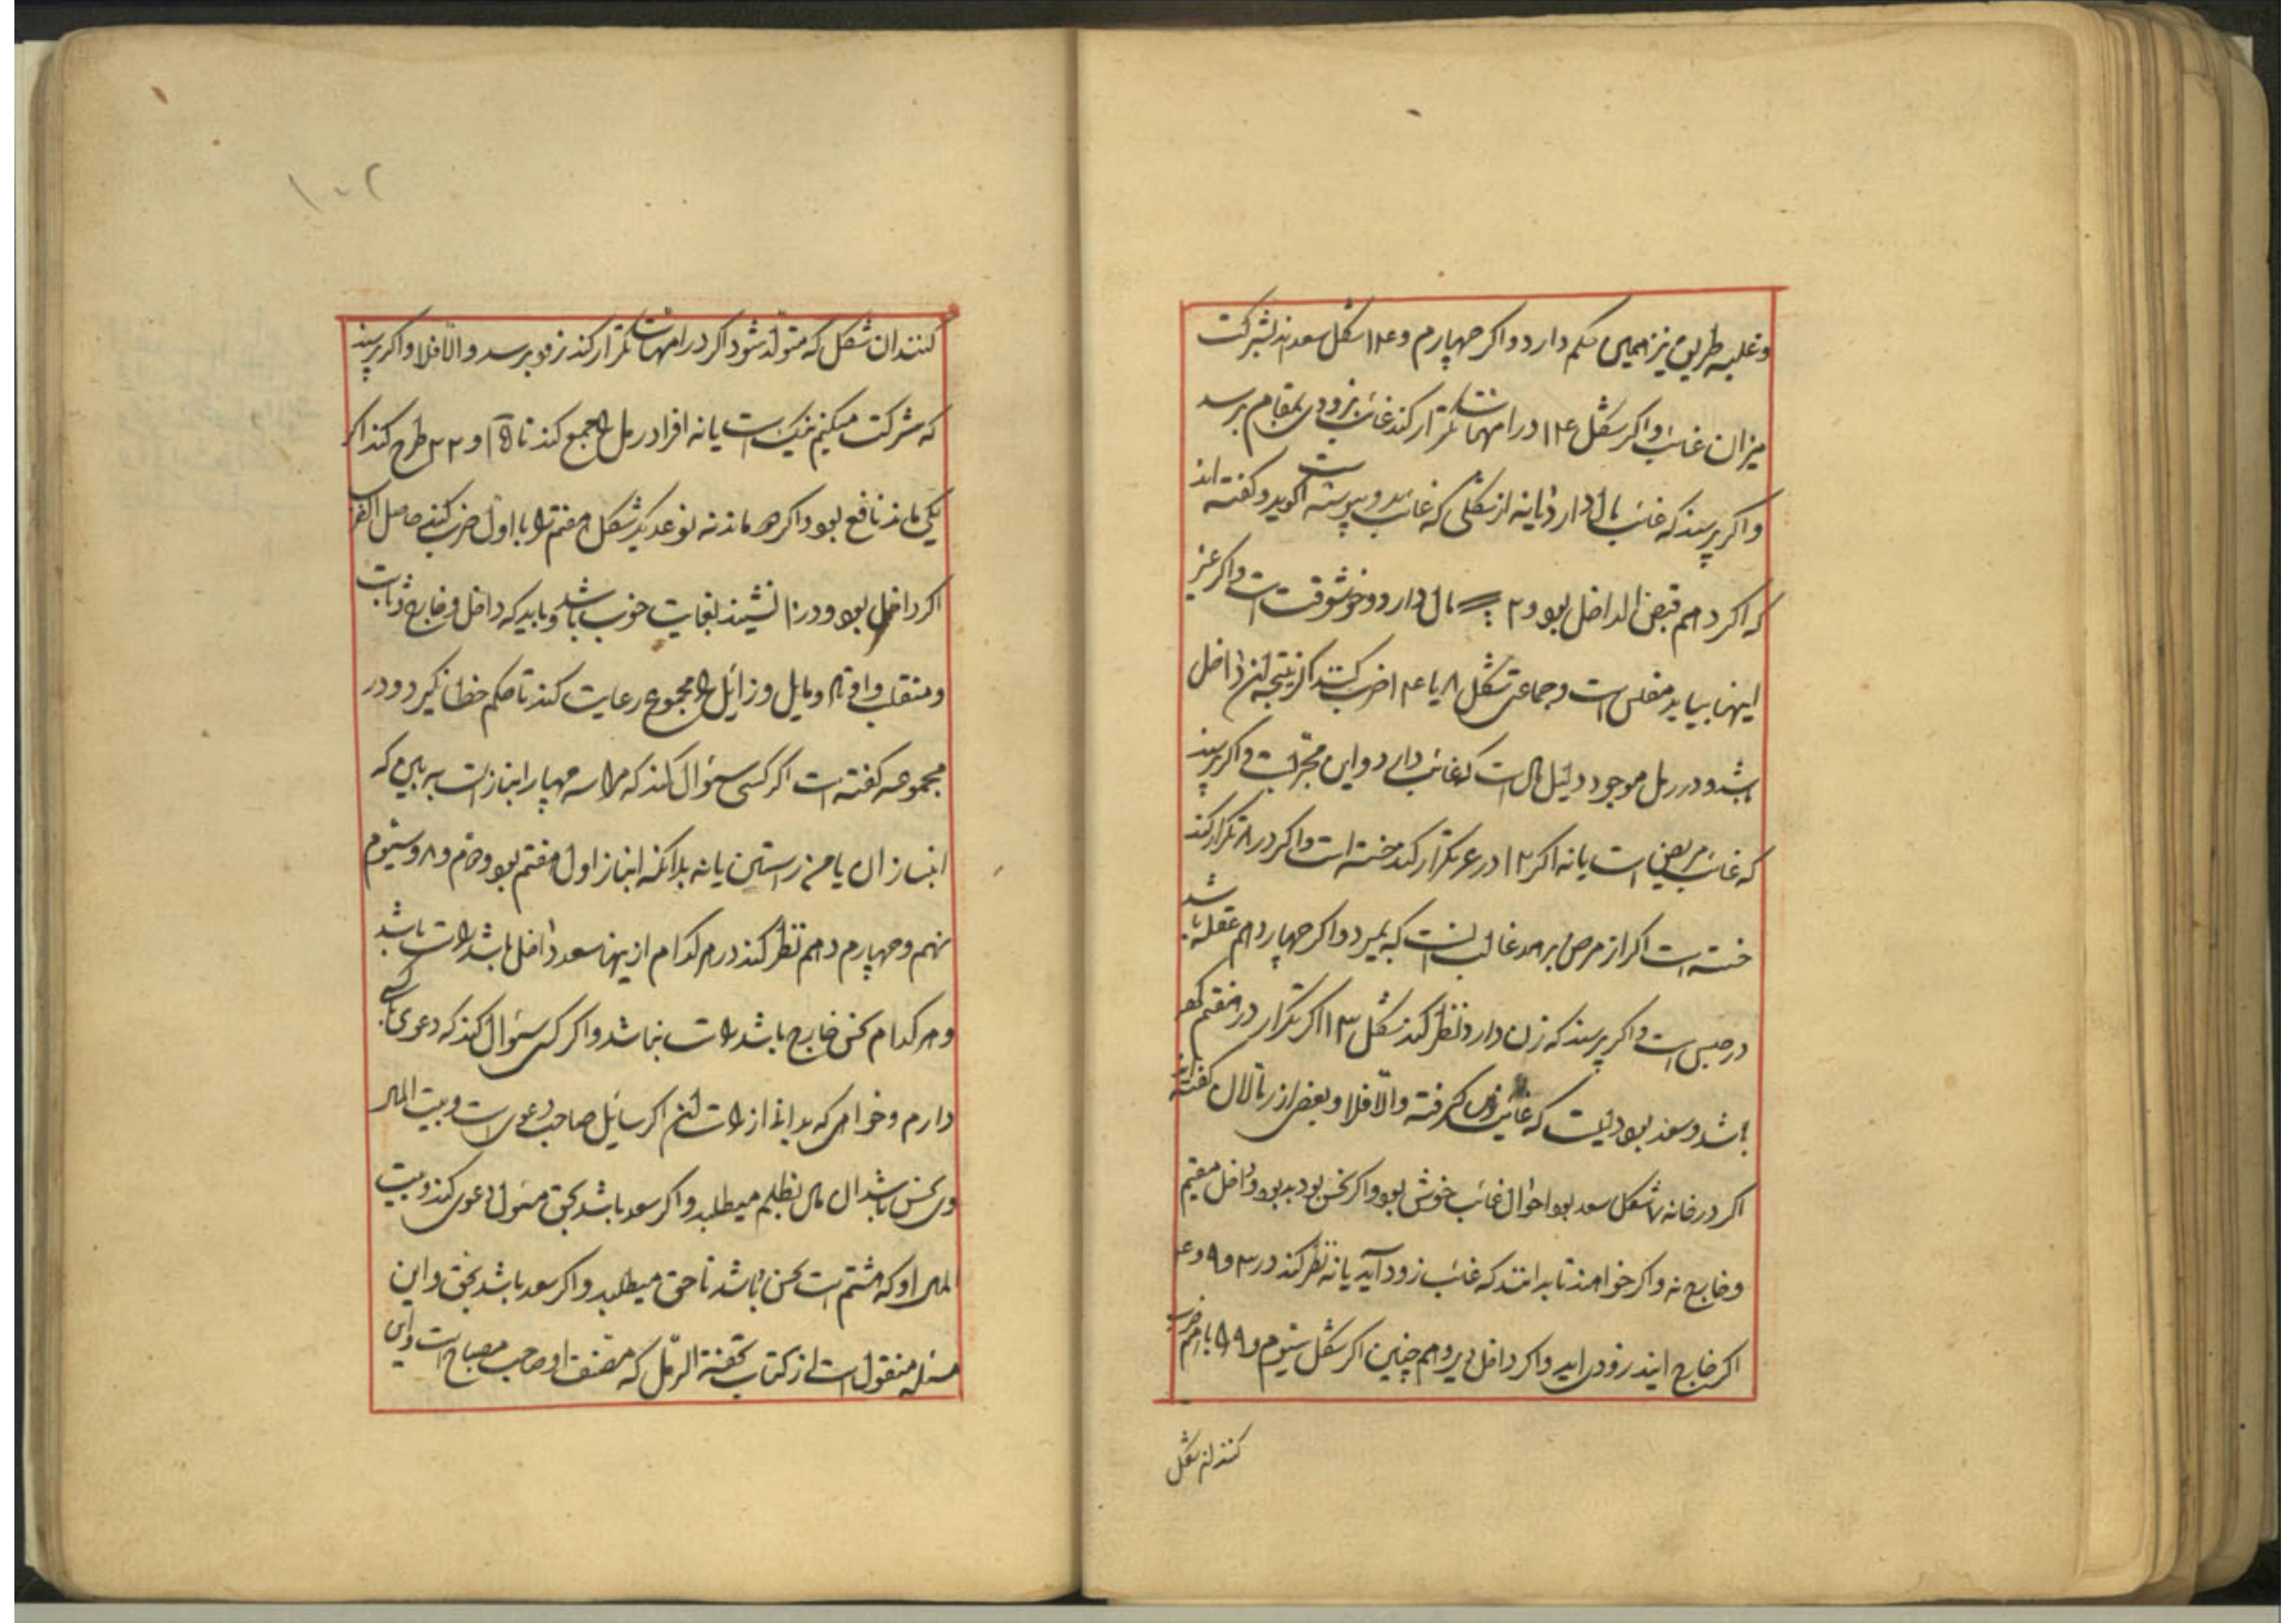 و غلبه طریق نیز همین حکم دارد و اکر چهارم و ۱۴ شکل سعد اند بشرکت
میزان غائب و اکر شکل ۱۴ در امهات تکرار کند غائب بزودی بمقام برسد
و اکر پرسند که غائب مال دارد یا نه از شکلی که غائب بدو پیوسته است کوید و کفته اند
که اکر دهم قبض الداخل بود و ۲ مال دارد و خوشوقت است و اکر غیر
اینها بیاید مفلس است و جماعتی شکل ۸ با ۱۴ ضرب کنند اکر نتیجه آن داخل
باشد و در رمل موجود دلیل مال است که غائب دارد و این مجربست و اکر پرسند
که غائب مریض است یا نه اکر ۱۲ در ۶ تکرار کند خسته است و اکر در ۸ تکرار کند
خسته است اکر از مرض برهد غالب آنست که بمیرد و اکر چهاردهم عقله باشد
در حبس است و اکر پرسند که زن دارد نظر کند شکل ۱۳ اکر تکرار در هفتم
باشد و سعد بود که غائب زن کرفته و الا فلا و بعضی از رمالان کفته اند
اکر در خانه ۷ شکل سعد بود احوال غائب خوش بود و اکر نحس بود بد بود و داخل مقیم
و خارج نه و اکر خواهند تا بدانند که غائب زود آید یا نه نظر کند در ۳ و ۹ و ۴
اکر خارج آیند زود آید و اکر داخل دیر و هم چنین اکر شکل سیوم و ۹ را باهم ضرب
کنند ان شکل
۱۰۲
کنند ان شکل که متولد شود اکر در امهات تکرار کند زود برسد و الا فلا و اکر پرسند
که شرکت میکنیم نیک است یا نه افراد رمل را جمع کند تا ۱۵ و ۲۲ طرح کند اکر
یکی ماند نافع بود و اکر دو ماند نه نوع دیکر شکل هفتم را با اول ضرب کنند حاصل
اکر داخل بود و در ۱۰ نشیند بغایت خوب باشد و باید که داخل و خارج و ثابت
و منقلب و اوتاد و مایل و زایل را مجموع رعایت کند تا حکم خطا نکیرد و در
مجموعه کفته است اکر کسی سئوال کند که مرا سه چهار انباز است به بین که
انباز ان با من راستن یا نه بدانکه انباز اول هفتم بود و دوم و ۸ و سیوم
نهم و چهارم دهم نظر کند در هر کدام از ینها سعد داخل باشد راست باشد
و هر کدام نحس خارج باشد راست نباشد و اکر کسی سئوال کند که دعوی با کسی
دارم و خواهی که بدانی از راست اکر سایل صاحب دعوی است و بیت المال
وی نحس باشد ان مال بظلم میطلبد و اکر سعد باشد بحق مسئول دعوی کند و بیت
المال او که هشتم است نحس باشد ناحق میطلبد و اکر سعد باشد بحق و این
مسئله منقول است از کتاب تحفة الرمل که مصنف او صاحب مصباح است و این